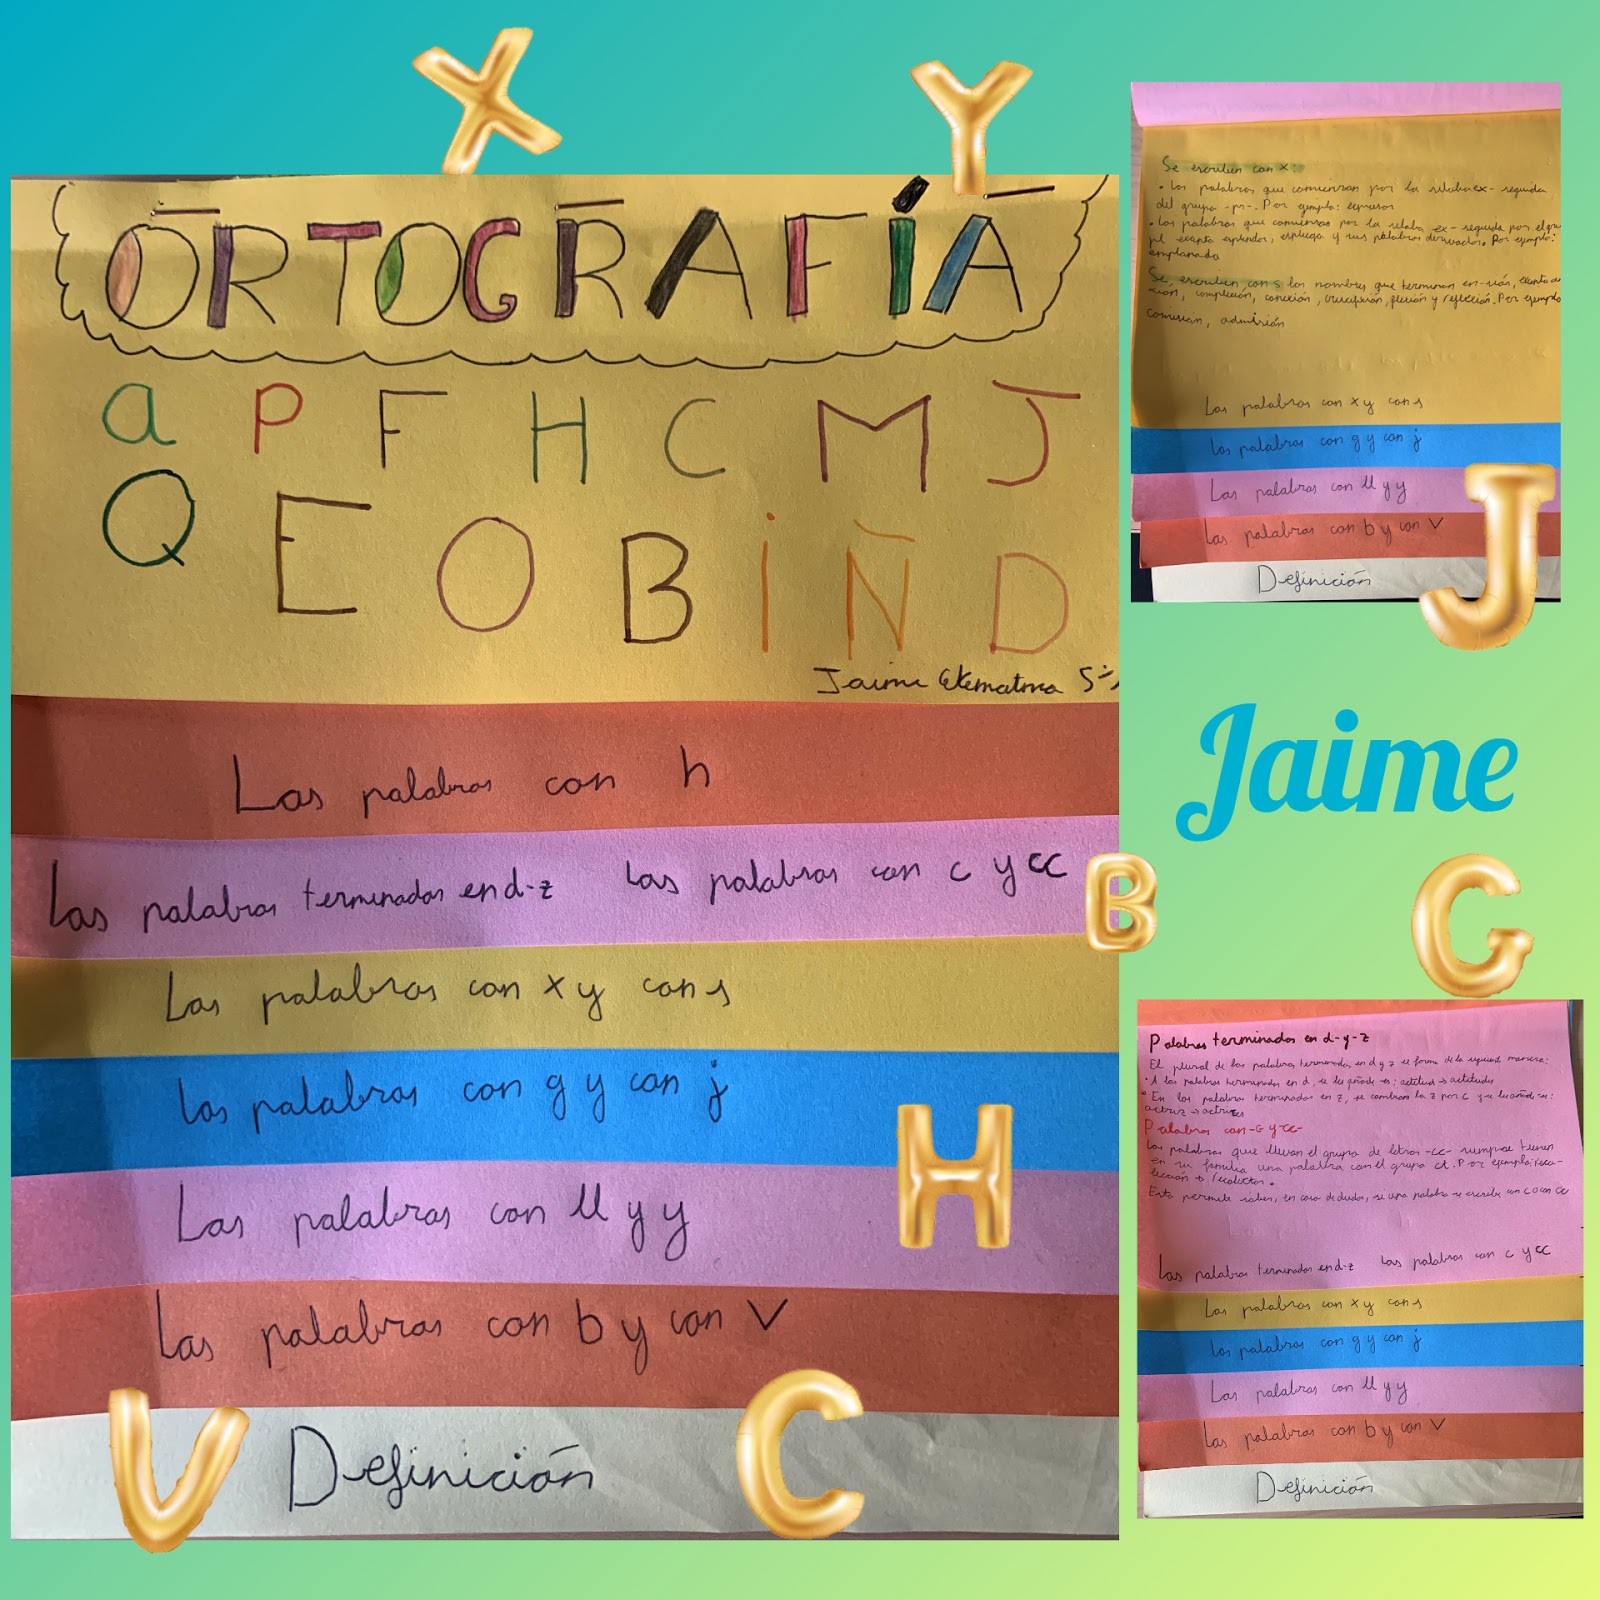 X
Y
ORTOGRAFÍA
a P F H C M J
Q E O B i Ñ D
Jaime
Las palabras con h
Las palabras terminadas en d-z Las palabras con c y cc
Las palabras con x y con s
Las palabras con g y con j
Las palabras con ll y y
Las palabras con b y con v
Definición
V
C
H
B
Se escriben con x:
• Las palabras que comienzan por la sílaba ex- seguida
del grupo -pr-. Por ejemplo: expresar
• Las palabras que comienzan por la sílaba ex- seguida por el
pl excepto esplendor, espliego y sus palabras derivadas. Por ejemplo:
explanada
Se escriben con s los nombres que terminan en -sión, excepto
complexión, conexión, crucifixión, flexión y reflexión. Por ejemplo
comisión, admisión
Las palabras con x y con s
Las palabras con g y con j
Las palabras con ll y y
Las palabras con b y con v
Definición
J
Jaime
G
Palabras terminadas en d-y-z
El plural de las palabras terminadas en d y z se forma de la siguiente manera:
• A las palabras terminadas en d, se les añade -es: actitud → actitudes
• En las palabras terminadas en z, se cambia la z por c y se les añade -es:
actriz → actrices
Palabras con -c y cc-
Las palabras que llevan el grupo de letras -cc- siempre tienen
en su familia una palabra con el grupo ct. Por ejemplo:
Esto permite saber, en caso de duda, si una palabra se escribe con c o con cc
Las palabras terminadas en d-z Las palabras con c y cc
Las palabras con x y con s
Las palabras con g y con j
Las palabras con ll y y
Las palabras con b y con v
Definición